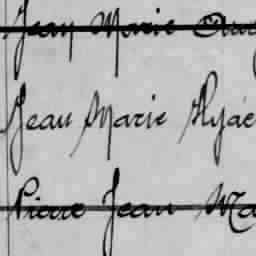 Jean Marie
Jean Marie Hyac
Pierre Jean Ma